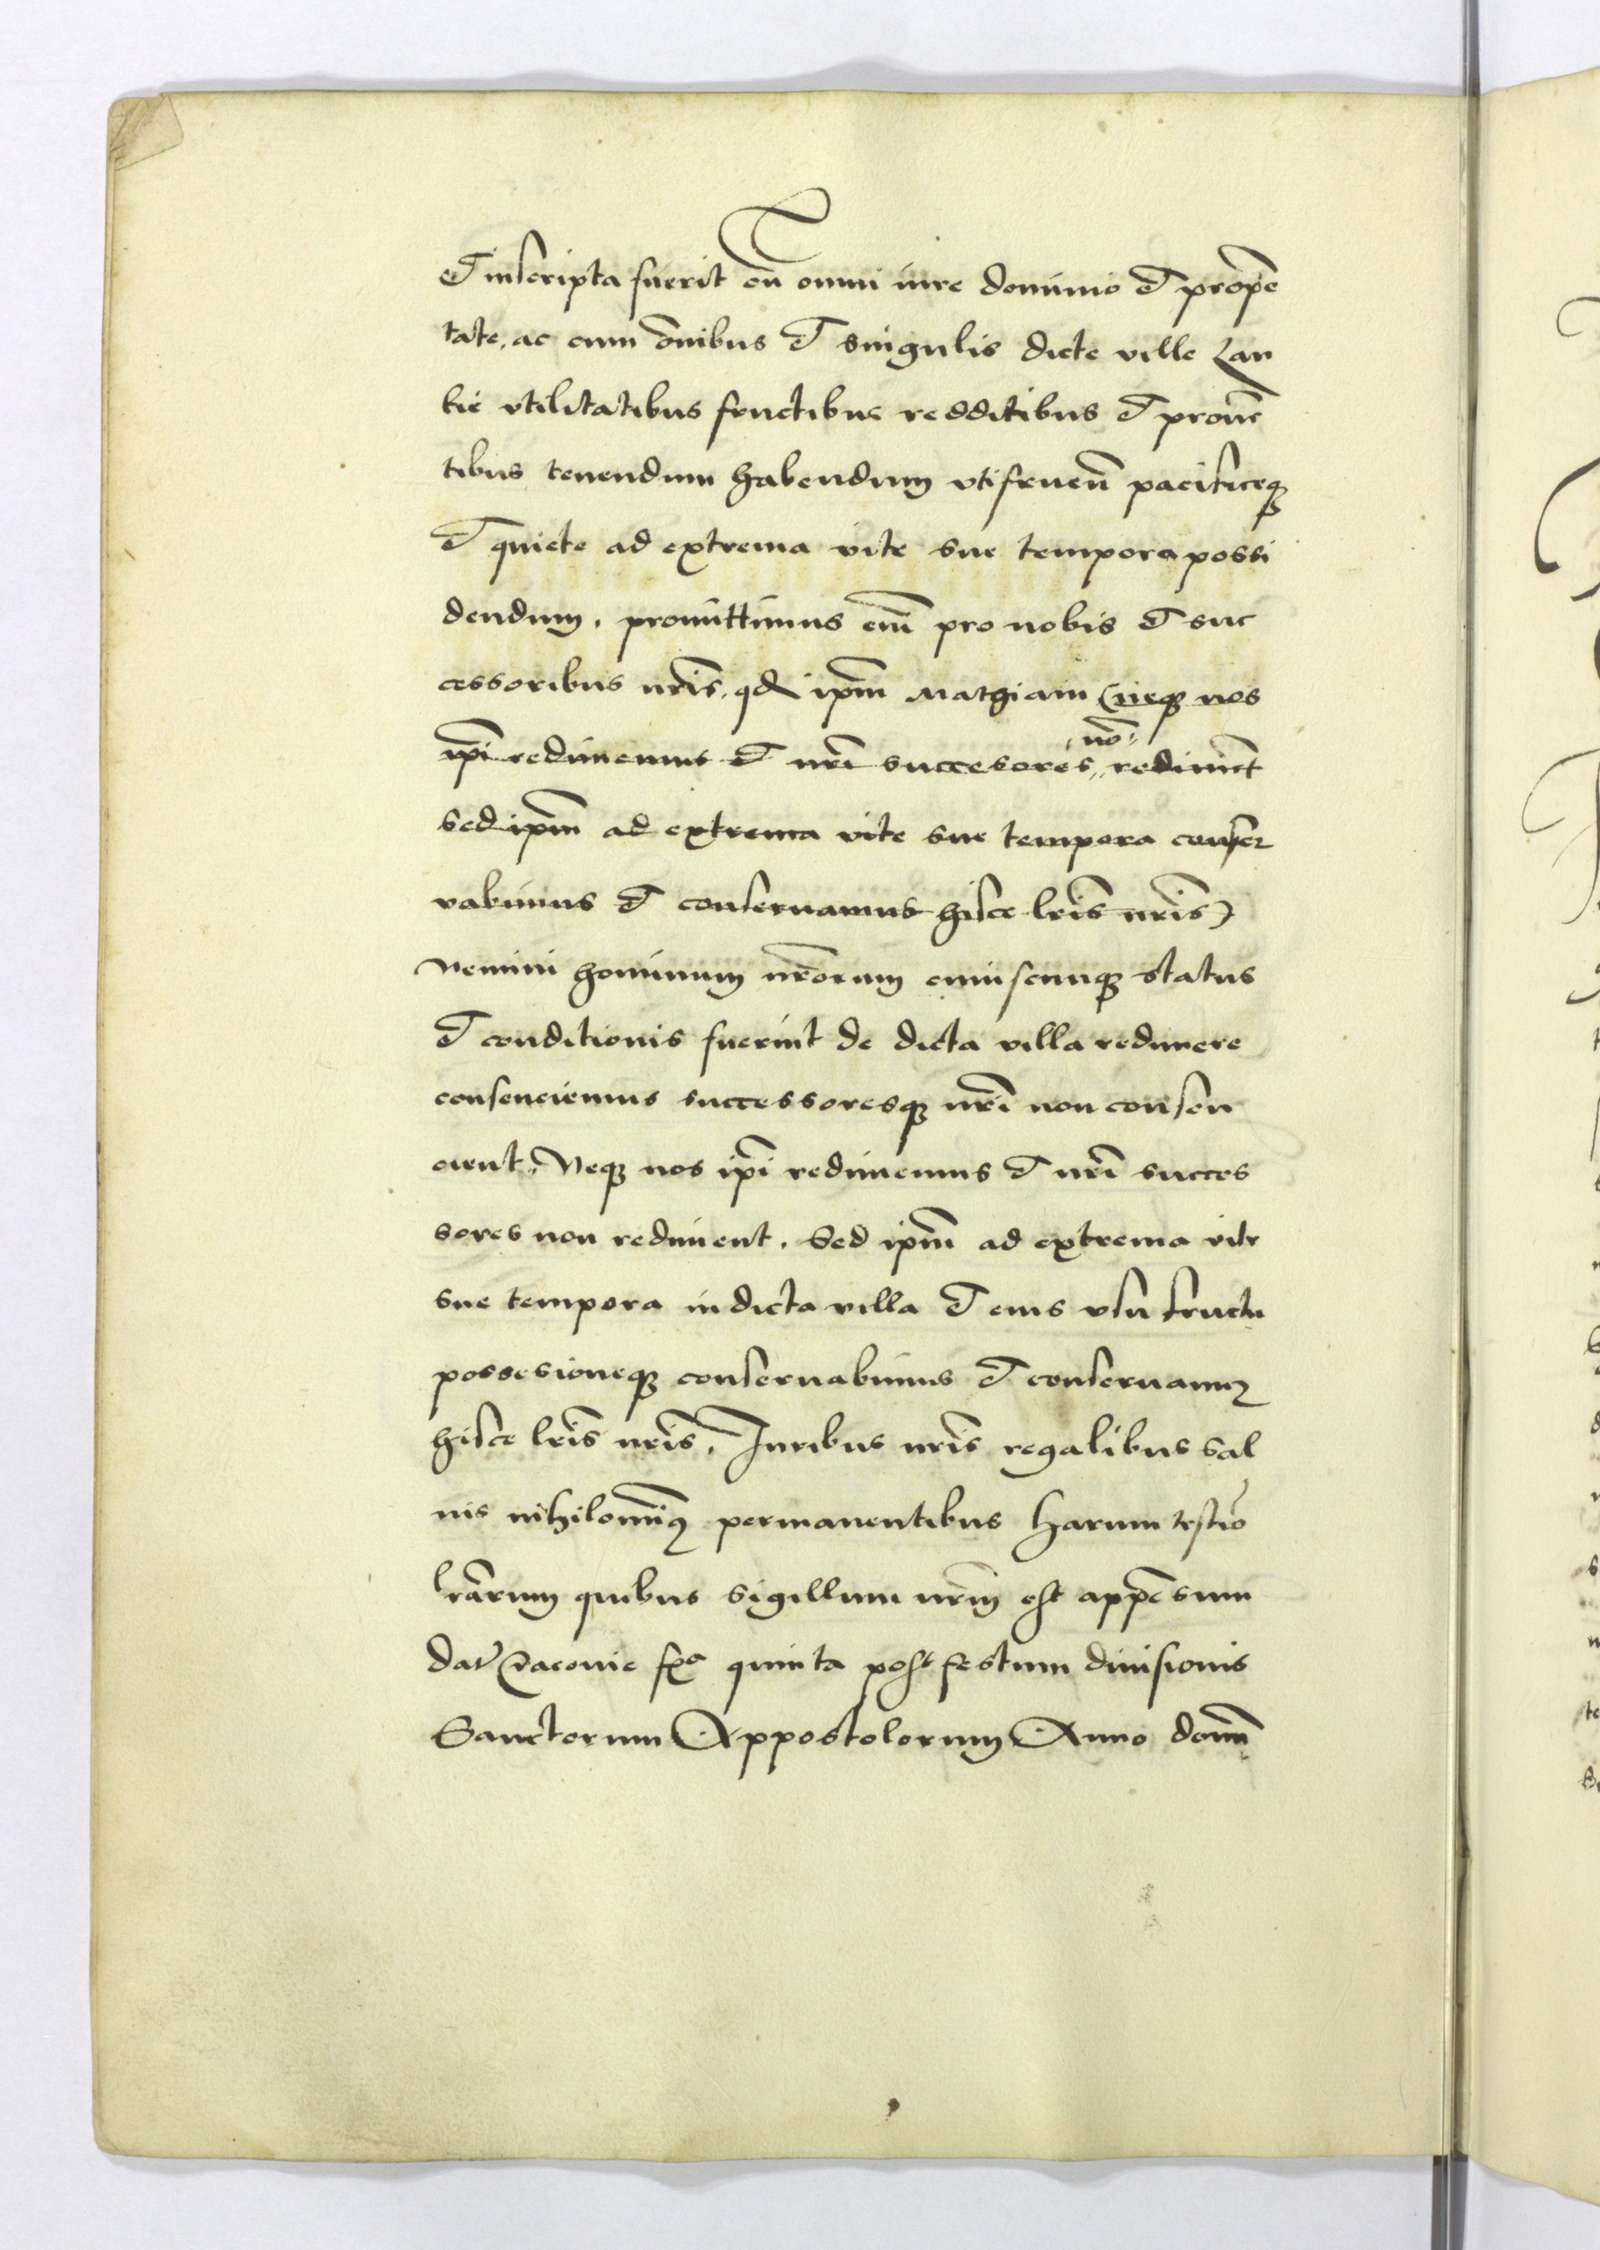 et inscripta fuerit cū omni iure dominio et prop̄e
tate, ac cum om̄ibus et singulis dicte ville Lan
tie vtilitatibus fructibus redditibus et proūe
tibus tenendum habendum vtifruen̄ pacificeqȝ
et quiete ad extrema vite sue tempora possi
dendum, promittimus em̄ pro nobis et suc
cessoribus nr̄is, qd ip̄m Mathiam (neqȝ nos
ip̄i redimemus et nr̄i succesores nō rediment
sed ip̄m ad extrema vite sue tempora conser
vabimus et conseruamus hisce lr̄is nr̄is)
Nemini hominum nr̄orum cuiuscunqȝ status
et conditionis fuerint de dicta villa redimere
consenciemus successoresqȝ nr̄i non consen
cient, Neqȝ nos ip̄i redimemus et nr̄i succes
sores non rediment, Sed ip̄m ad extrema vite
sue tempora in dicta villa et eius vsu fructu
possesioneqȝ conseruabimus et conseruamus
hisce lr̄is nr̄is, Iuribus nr̄is regalibus sal
uis nihilomīꝰ permanentibus harum testīo
lr̄arum quibus sigillum nr̄m est app̄esum
dat̄ Cracouie fꝫa quinta post festum diuisionis
Sanctorum Appostolorum Anno domī